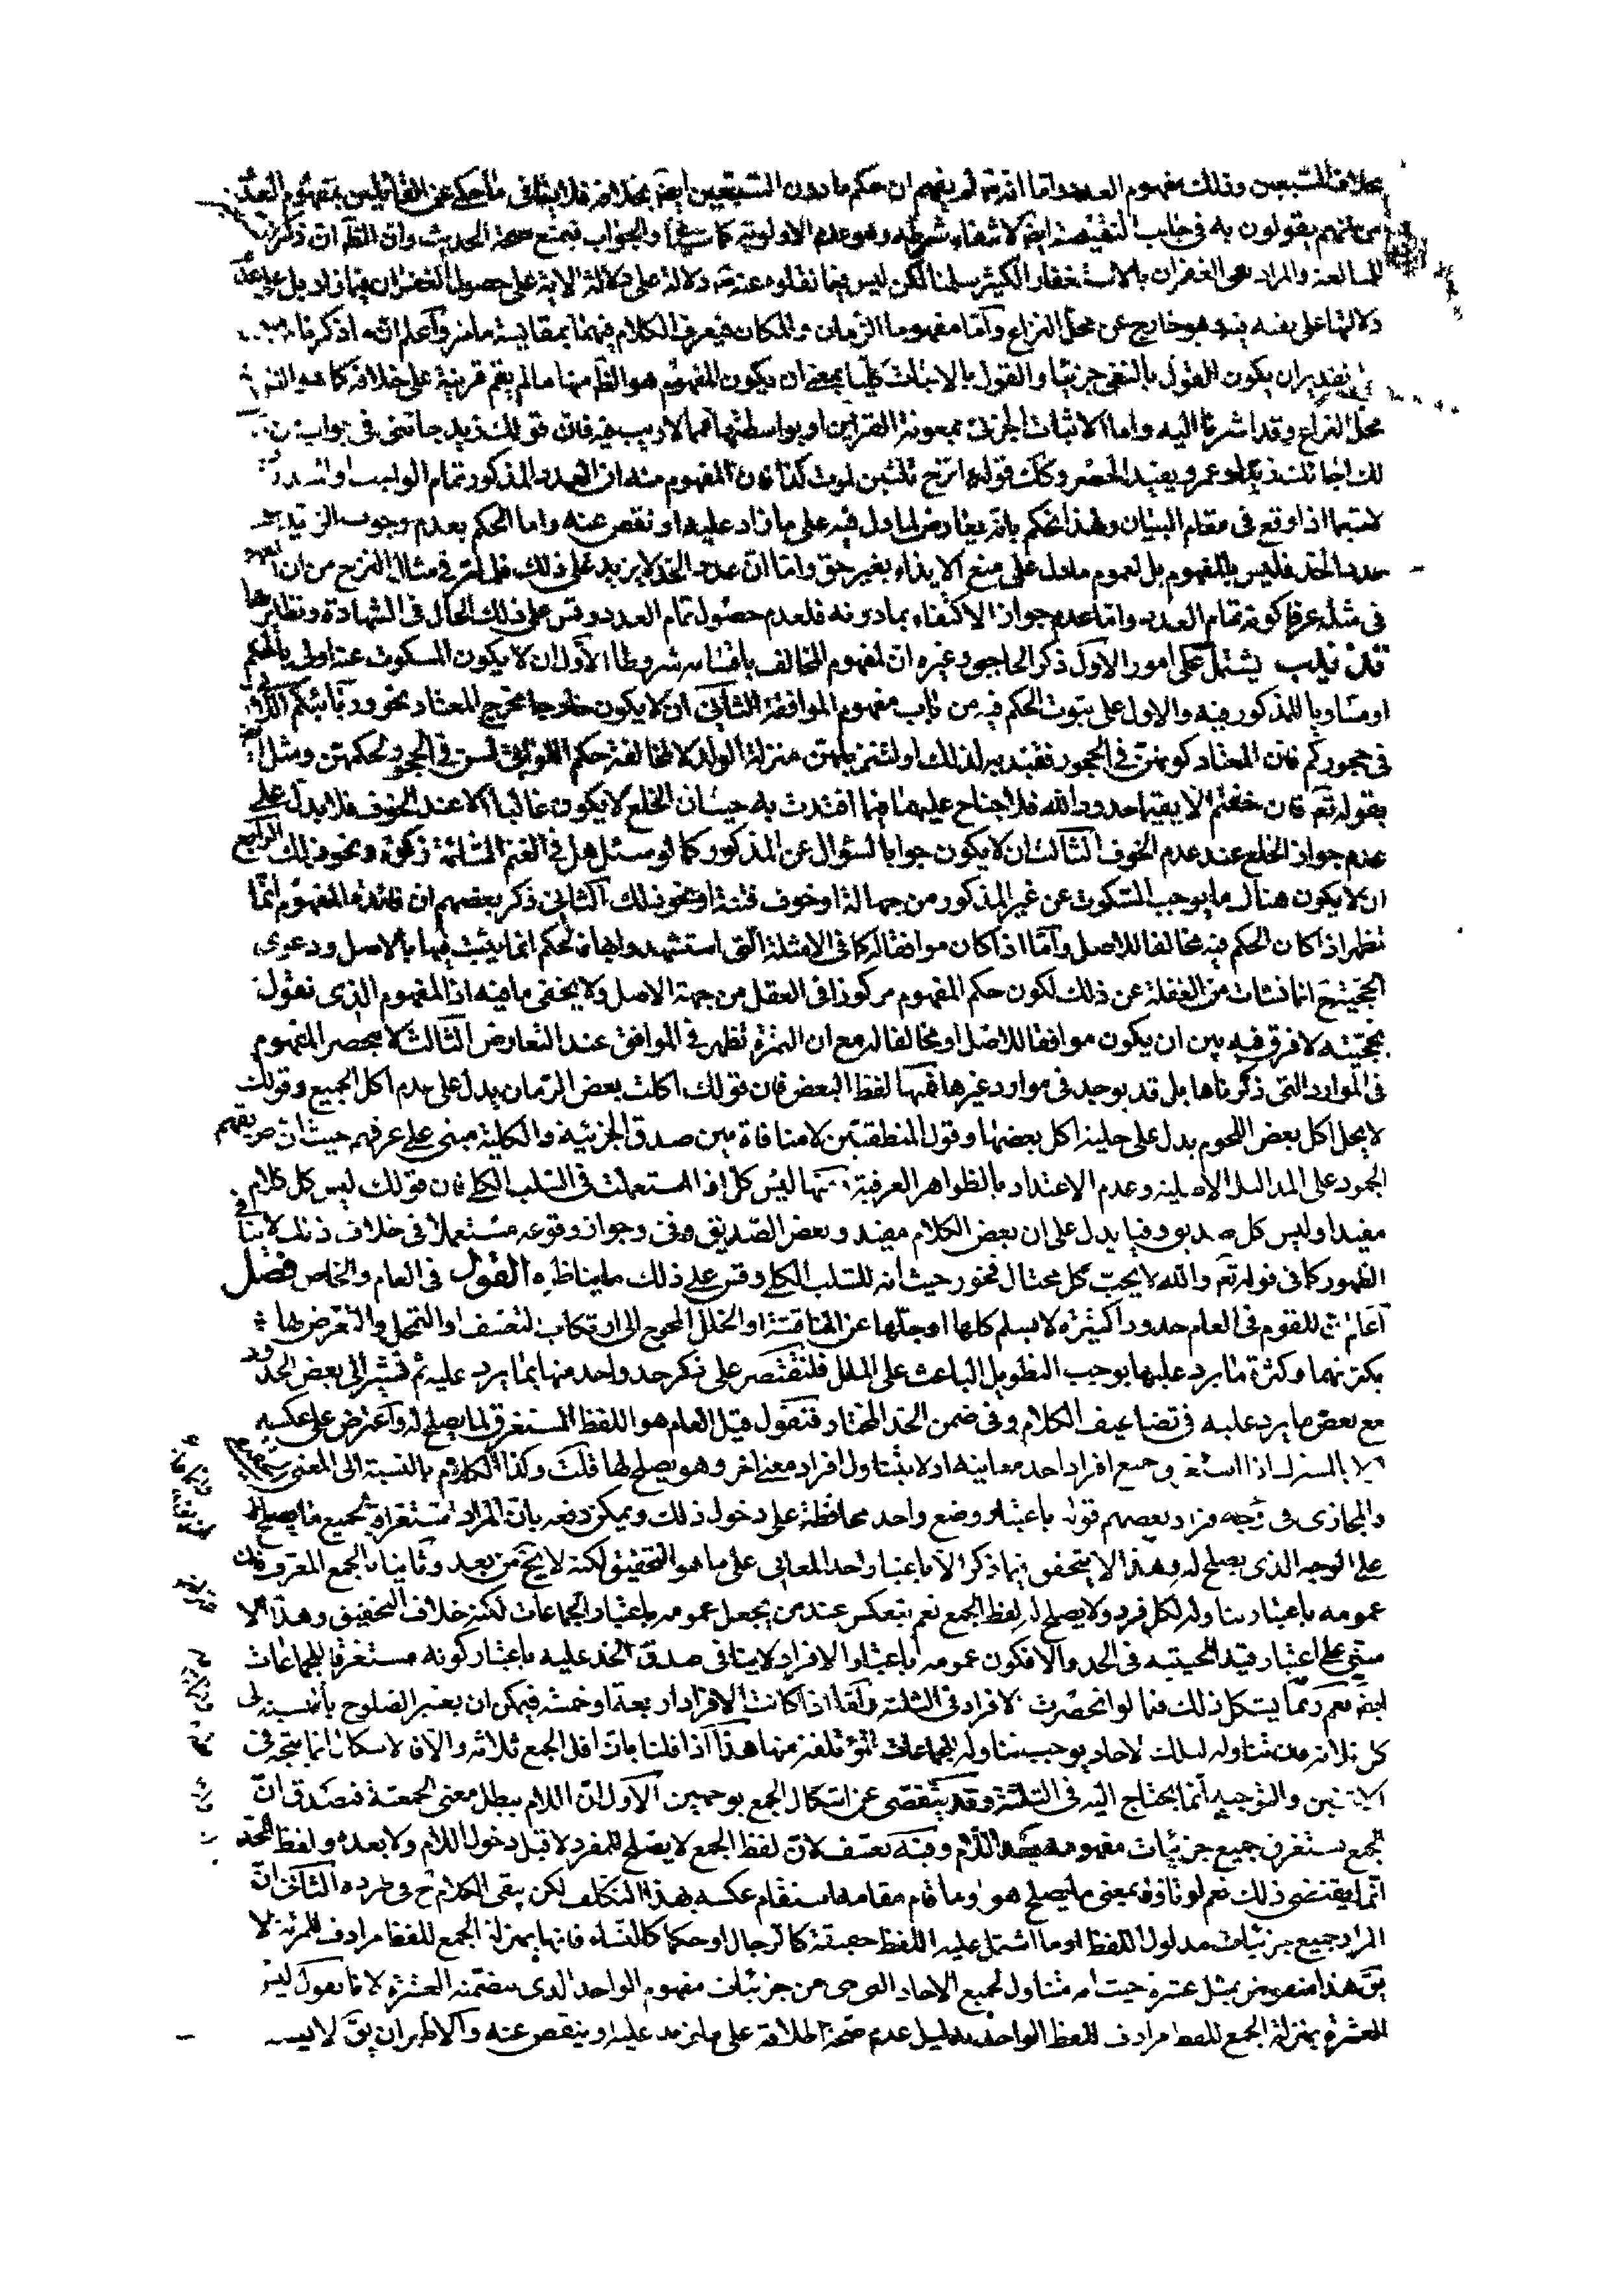 بخلاف السبعين وذلك مفهوم العدد واما انه لم يفهم ان حكم ما دون السبعين ايضا بخلافه فلا ينافى ما حكى عن القائلين بمفهوم العدد
من انهم يقولون به فى جانب النقيصة ايضا لانتفاء شرطه وهو عدم الاولوية كما سيجئ والجواب فبمنع صحة الحديث وان الظ ان ذكر
للمبالغة والمراد نفى الغفران بالاستغفار الكثير سلمنا لكن ليس فيما نقلوه عنه ص دلالة على دلالة الاية على حصول الغفران فيما زاد بل على عدم
دلالتها على نفيه فيه وهو خارج عن محل النزاع وامّا مفهوما الزمان والمكان فيعرف الكلام فيهما بمقايسة ما مر واعلم انه اذكرنا
تقدير ان يكون القول بالنفى جزئيا والقول بالاثبات كليا بمعنى ان يكون المفهوم هو الظ منها ما لم يقم قرينة على خلافه كما هو
محل النزاع وقد اشرنا اليه واما الاثبات الجزئى بمعونة القراين او بواسطتها فمما لا ريب فيه فان قولك زيد جائنى فى جواب من
لك اجائك زيد او عمرو يفيد الحصر وكك قوله انزح ثلثين لموت كذا فان المفهوم منه ان العدد المذكور تمام الواجب
لاسيما اذا وقع فى مقام البيان ولهذا نحكم بانه يعارض لما دل فيه على ما زاد عليه او نقص عنه واما الحكم بعدم وجوب
عدد الحد فليس بالمفهوم بل لعموم ما دل على منع الايذاء بغير حق واما ان عدد الحد لا يزيد على ذلك فلما مر فى مثال النزح من ان
فى مثله عرفا كونه تمام العدد واما عدم جواز الاكتفاء بما دونه فلعدم حصول تمام العدد وقس على ذلك الحال فى الشهادة ونظايرها
تذنيب يشتمل على امور الاول ذكر الحاجبى وغيره ان لمفهوم المخالف باقسامه شروطا الاول ان لا يكون المسكوت عنه اولى بالحكم
او مساويا للمذكور فيه والا دل على ثبوت الحكم فيه من باب مفهوم الموافقة الثانى ان لا يكون خارجا مخرج المعتاد نحو وربائبكم اللاتى
فى حجوركم فان المعتاد كونهن فى الحجور فقيد به لذلك او لتنزيلهن منزلة الولد لا لمخالفة حكم اللواتى لسن فى الحجور لحكمهن ومثل
بقوله تع فان خفتم الا يقيما حدود الله فلا جناح عليهما فيما افتدت به حيث ان الخلع لا يكون غالبا الا عند الخوف فلا يدل على
عدم جواز الخلع عند عدم الخوف الثالث ان لا يكون جوابا لسؤال عن المذكور كما لو سئل هل فى الغنم السائمة زكوة ونحو ذلك الرابع
ان لا يكون هناك ما يوجب السكوت عن غير المذكور من جهالة او خوف فتنة او نحو ذلك الثانى ذكر بعضهم ان فائدة المفهوم انما
تظهر اذا كان الحكم فيه مخالفا للاصل وامّا اذا كان موافقا له كما فى الامثلة التى استشهدوا بها فالحكم انما يثبت فيها بالاصل ودعوى
الحجية ح انما نشات من الغفلة عن ذلك لكون حكم المفهوم مركوزا فى العقل من جهة الاصل ولا يخفى ما فيه اذ المفهوم الذى نقول
بحجيته لا فرق فيه بين ان يكون موافقا للاصل او مخالفا له مع ان الثمرة تظهر فى الموافق عند التعارض الثالث لا ينحصر المفهوم
فى الموارد التى ذكرناها بل قد يوجد فى موارد غيرها فمنها لفظ البعض فان قولك اكلت بعض الرمان يدل على عدم اكل الجميع وقولك
لا يحل اكل بعض اللحوم يدل على حلية اكل بعضها وقول المنطقيين لا منافاة بين صدق الجزئية والكلية مبنى على عرفهم حيث ان طريقتهم
الجمود على المداليل الاصلية وعدم الاعتداد بالظواهر العرفية ومنها ليس كل اذا استعملت فى السلب الكلى فان قولك ليس كل كلام
مفيدا وليس كل صديق وفيا يدل على ان بعض الكلام مفيد وبعض الصديق وفى وجواز وقوعه مستعملا فى خلاف ذلك لا ينافى
الظهور كما فى قوله تع والله لا يحب كل مختال فخور حيث انه للسلب الكلى وقس على ذلك ما يناظره القول فى العام والخاص فصل
اعلم ان للقوم فى العام حدودا كثيرة لا يسلم كلها او جلها عن المناقشة او الخلل المحوج الى ارتكاب التعسف او التمحل والتعرض لها
بكثرتها وكثرة ما يرد عليها يوجب التطويل الباعث على الملل فلنقتصر على ذكر حد واحد منها بما يرد عليه ثم نشير الى بعض الحدود
مع بعض ما يرد عليه فى تضاعيف الكلام وفى ضمن الحد المختار فنقول قيل العام هو اللفظ المستغرق لما يصلح له واعترض على عكسه
اولا بالمشترك اذا استغرق جميع افراد احد معانيه اذ لا يتناول افراد معنى اخر وهو يصلح لها قلت وكذا الكلام بالنسبة الى المعنى الحقيقى
والمجازى فى وجه فزاد بعضهم قوله باعتبار وضع واحد محافظة على دخول ذلك ويمكن دفعه بان المراد استغراقه لجميع ما يصلح له
على الوجه الذى يصلح له وهذا لا يتحقق فيما ذكر الا باعتبار احد المعانى على ما هو التحقيق لكنه لا يخ من بعد وثانيا بالجمع المعرف فان
عمومه باعتبار تناوله لكل فرد ولا يصلح له لفظ الجمع نعم ينعكس عند من يجعل عمومه باعتبار الجماعات لكنه خلاف التحقيق وهذا
مبنى على اعتبار قيد الحيثية فى الحد والا فكون عمومه باعتبار الافراد لا ينافى صدق الحد عليه باعتبار كونه مستغرقا للجماعات
ايضا نعم ربما يشكل ذلك فيما لو انحصرت الافراد فى الثلثة وامّا اذا كانت الافراد اربعة او خمسة فيمكن ان يعتبر الصلوح بالنسبة الى
كل ثلاثة فان تناوله لتلك الاحاد يوجب تناوله للجماعات التى تلفق منها هذا اذا قلنا بان اقل الجمع ثلاثة والا فالاشكال انما يتجه فى
الاثنين والتوجيه انما يحتاج اليه فى الثلثة وقد يتفصى عن اشكال الجمع بوجهين الاول ان اللام يبطل معنى الجمعية فتصدق ان
الجمع مستغرق جميع جزئيات مفهومه بعد اللام وفيه تعسف لان لفظ الجمع لا يصلح للمفرد لا قبل دخول اللام ولا بعده ولفظ الحد
انما يقتضى ذلك نعم لو ناوله بمعنى ما يصلح هو او ما قام مقامه استقام عكسه بهذا التكلف لكن يبقى الكلام ح فى طرده الثانى ان
المراد جميع جزئيات مدلول اللفظ او ما اشتمل عليه اللفظ حقيقة كالرجال او حكما كالنساء فانها بمنزلة الجمع للفظ مرادف للمرئة لا
يق هذا منقوض بمثل عشرة حيث انه متناول لجميع الاحاد التى هى من جزئيات مفهوم الواحد الذى يتضمنه العشرة لانا نقول ليس
العشرة بمنزلة الجمع للفظ مرادف للفظ الواحد بدليل عدم صحة اطلاقه على ما يزيد عليه او ينقص عنه والاظهر ان يق لا